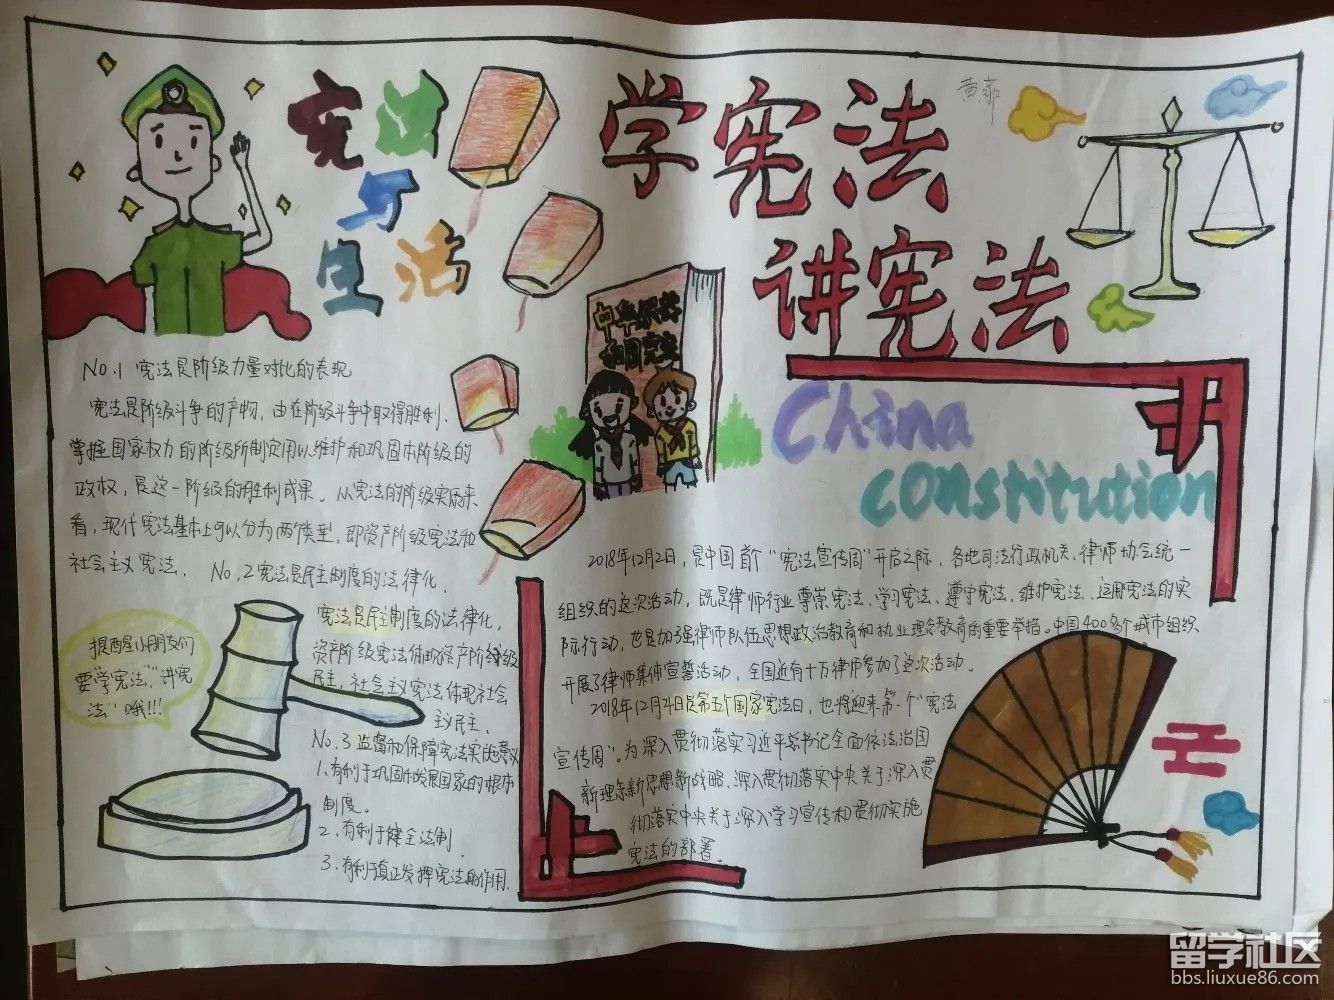 宪法
与
生活
学宪法
讲宪法
黄菲
中华人民共
和国宪法
China
constitution
No.1 宪法是阶级力量对比的表现
宪法是阶级斗争的产物，由在阶级斗争中取得胜利、
掌握国家权力的阶级所制定用以维护和巩固本阶级的
政权，是这一阶级的胜利成果。从宪法的阶级实质来
看，现代宪法基本上可以分为两个类型，即资产阶级宪法和
社会主义宪法。
No.2 宪法是民主制度的法律化，
宪法是民主制度的法律化，
资产阶级宪法体现资产阶级
民主，社会主义宪法体现社会
主义民主。
No.3 监督和保障宪法实施意义
1、有利于巩固和发展国家的根本
制度。
2、有利于健全法制
3、有利于真正发挥宪法的作用。
提醒小朋友们
要“学宪法”“讲宪
法”哦!!!
2018年12月2日，是中国首个“宪法宣传周”开启之际，各地司法行政机关、律师协会统一
组织的这次活动，既是律师行业尊崇宪法、学习宪法、遵守宪法、维护宪法、运用宪法的实
际行动，也是加强律师队伍思想政治教育和执业理念教育的重要举措。中国400多个城市组织
开展了律师集体宣誓活动，全国近有十万律师参加了这次活动。
2018年12月4日是第五个国家宪法日，也将迎来第一个“宪法
宣传周”。为深入贯彻落实习近平总书记全面依法治国
新理念新思想新战略、深入贯彻落实中央关于深入贯
彻落实中央关于深入学习宣传和贯彻实施
宪法的部署。
留学社区
bbs.liuxue86.com